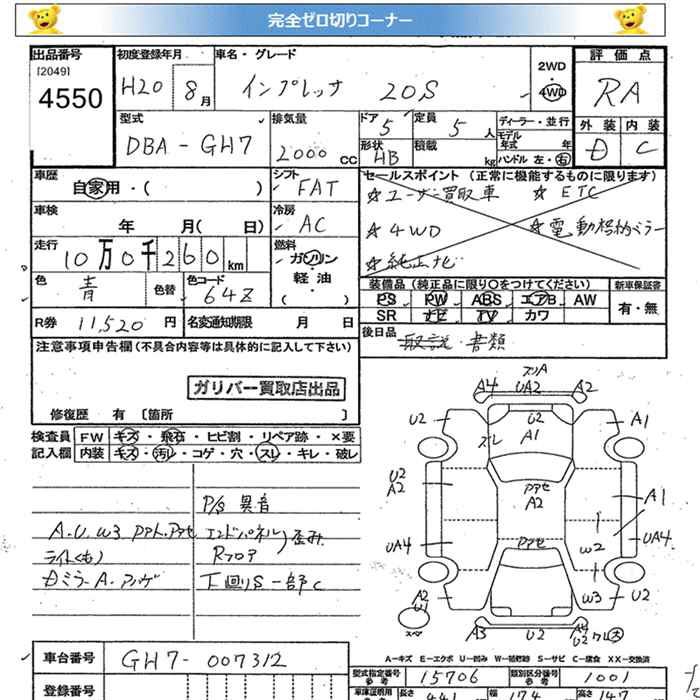 完全ゼロ切りコーナー
出品番号 初度登録年月 車名・グレード 評価点
[2049]
4550 H20 8月 インプレッサ 20S 2WD 4WD RA
外装 内装
D C
型式 排気量 ドア 定員 ディーラー・並行
DBA-GH7 2000cc 5 5人 モデル年式 年
形状 積載 ハンドル 左・右
HB kg
車歴 自家用・( ) シフト FAT
セールスポイント(正常に機能するものに限ります)
☆ユーザー買取車 ☆ETC
☆4WD ☆電動格納ミラー
☆純正ナビ
車検 年 月( 日) 冷房 AC
走行 10万0千260km 燃料 ガソリン
軽油
( )
色 青 色替 色コード 64Z
装備品(純正品に限り○をつけてください) 新車保証書
PS PW ABS エアB AW 有・無
SR ナビ TV カワ
R券 11,520円 名変通知期限 月 日
後日品 取説・書類
注意事項申告欄(不具合内容等は具体的に記入して下さい)
ガリバー買取店出品
修復歴 有 [箇所 ]
検査員 FW キズ・飛石・ヒビ割・リペア跡・×要
記入欄 内装 キズ・汚レ・コゲ・穴・スレ・キレ・破レ
P/S 異音
A.U.W3 エンドパネル歪み
ライトくもり Rフロア
Dミラー A. 下回りS 一部C
スリA
A4 UA2 A2
U2 U2 A1
ズレ A1
U2 A2 A2 A1
UA4 W2 UA4
A2 W1 W3 U2
スペア
A3 U2 A4 U2
車台番号 GH7-007312
A-キズ E-エクボ U-凹み W-補修跡 S-サビ C-腐食 XX-交換済
型式指定番号 15706 類別区分番号 1001
参考 参考
登録番号 車庫証明用 長さ 441 幅 174 高さ 147